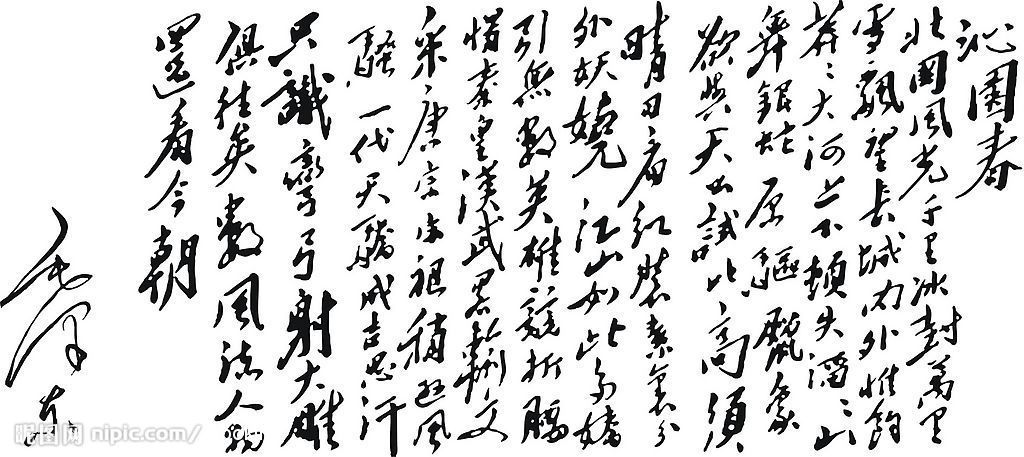 沁園春
北國風光千里冰封萬里
雪飄望長城內外惟餘
莽々大河上下頓失滔々山
舞銀蛇原驅臘象
欲與天公試比高須
晴日看紅裝素裹分
外妖嬈江山如此多嬌
引無數英雄競折腰
惜秦皇漢武略輸文
采唐宗宋祖稍遜風
騷一代天驕成吉思汗
只識彎弓射大雕
俱往矣數風流人物
還看今朝
毛澤東
昵图网 nipic.com/